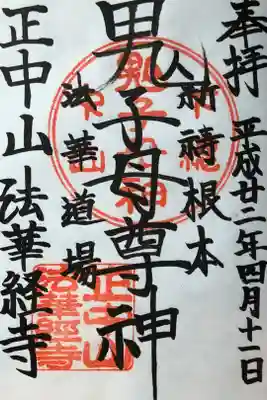 奉拝 平成廿二年四月十一日
祈祷根本
鬼子母尊神
法華道場
正中山 法華経寺
正中山
法華經寺